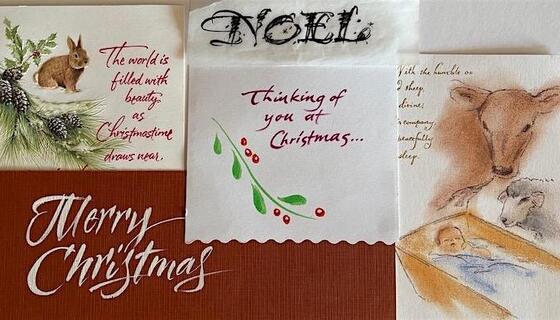 The world is
filled with
beauty
as
Christmastime
draws near.
NOEL
Thinking of
you at
Christmas...
Merry
Christmas
With the humble ox
sheep,
divine;
company
peacefully
sleep.